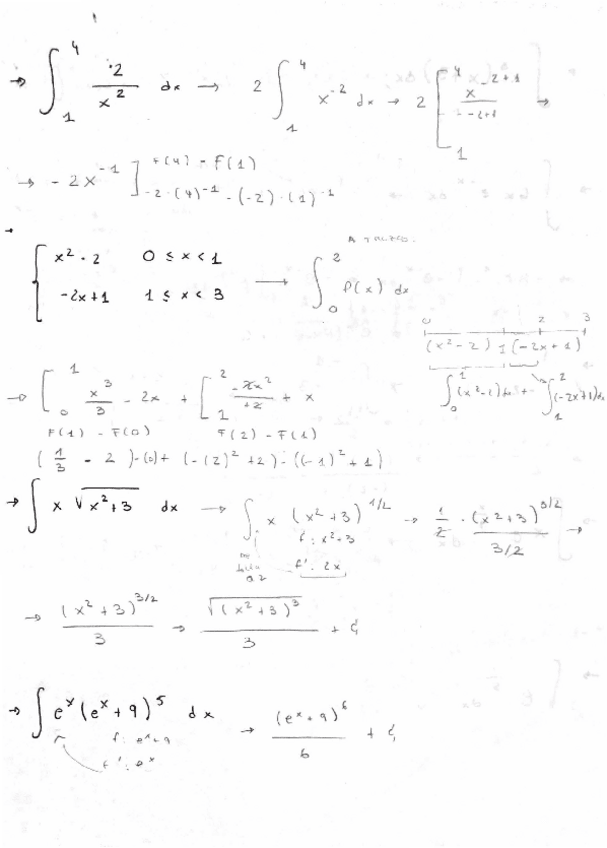 → ∫₁⁴ 2/x² dx → 2 ∫₁⁴ x⁻² dx → 2 [₁⁴ x⁻²⁺¹/-2+1 →
→ - 2x⁻¹ ] F(4) - F(1)
-2·(4)⁻¹ - (-2)·(1)⁻¹
A TROZOS.
{ x² - 2 0 ≤ x < 1
-2x+1 1 ≤ x < 3 → ∫₀² P(x) dx
0 1 2 3
(x² - 2) (-2x + 1)
∫₀¹ (x²-2)dx + ∫₁² (-2x+1)dx
→ [₀¹ x³/3 - 2x + [₁² -2x²/+2 + x
F(1) - F(0) F(2) - F(1)
(1/3 - 2) - (0) + (-(2)² + 2) - ((-1)² + 1)
→ ∫ x √(x²+3) dx → ∫ x (x²+3)^1/2 → 1/2 · (x²+3)^3/2 / 3/2 →
f: x²+3
f': 2x
→ (x²+3)^3/2 / 3 → √(x²+3)³ / 3 + C
→ ∫ eˣ(eˣ+9)⁵ dx → (eˣ+9)⁶ / 6 + C
f: eˣ+9
f': eˣ